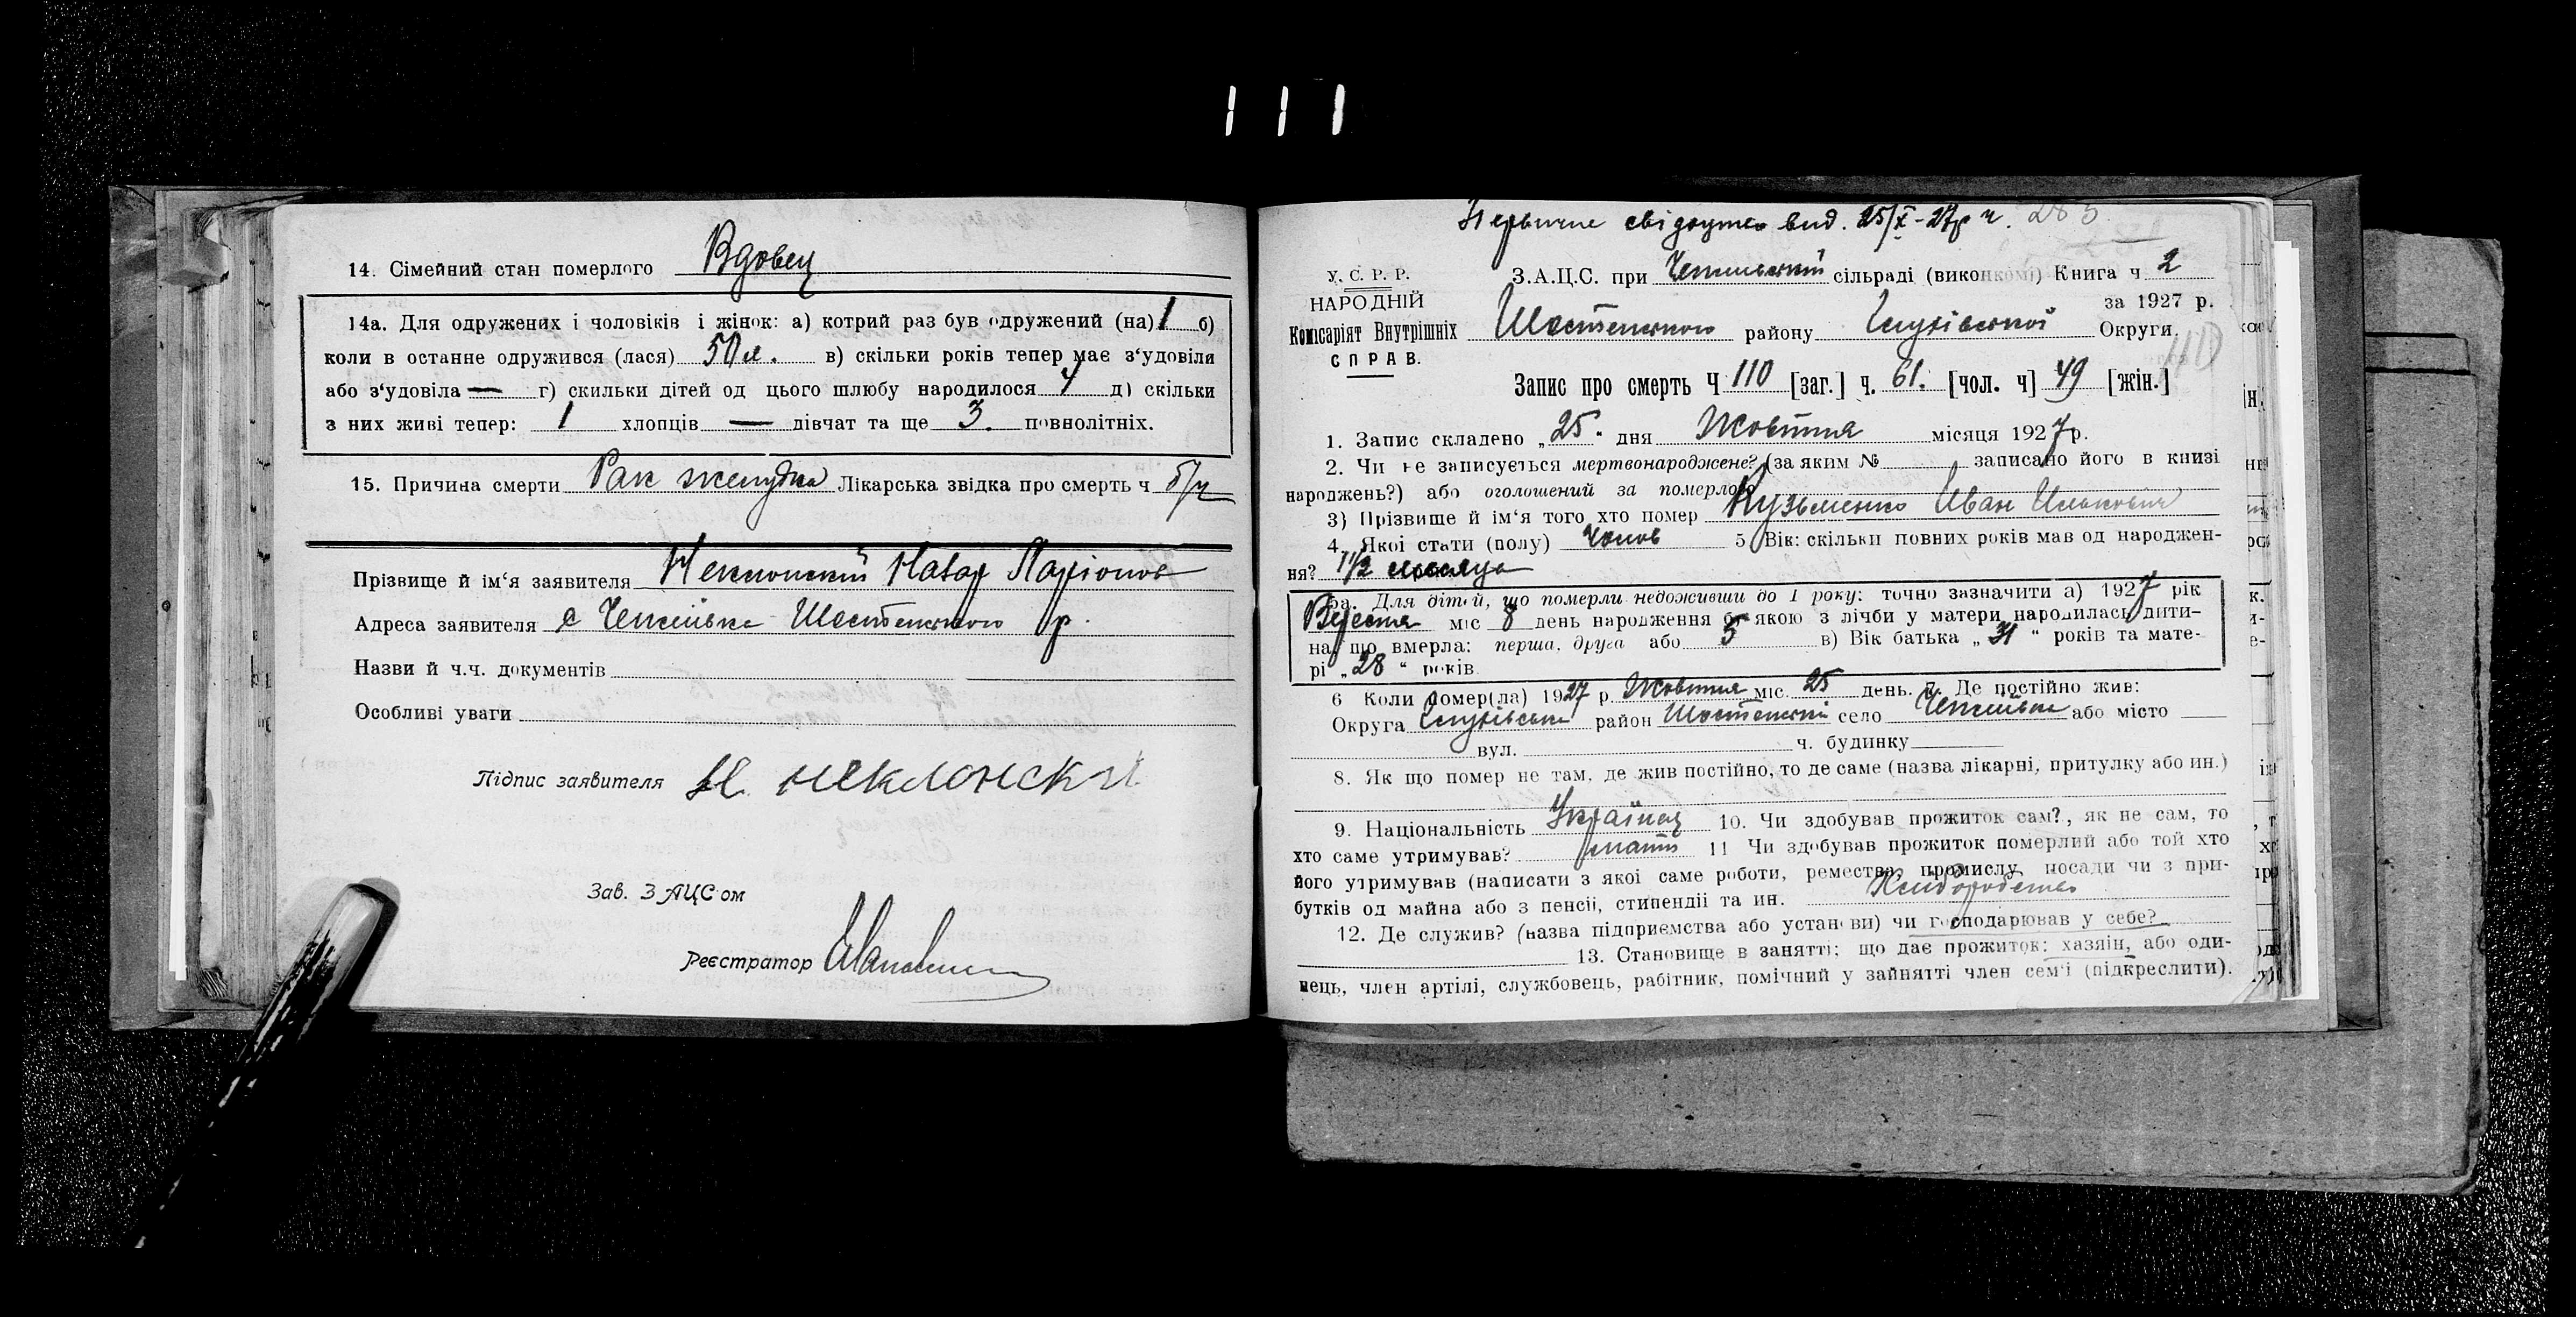 111
14. Сімейний стан померлого Вдовец
14а. Для одружених і чоловіків і жінок: а) котрий раз був одружений (на) 1 б)
коли в останне одружився (лася) 50 л. в) скільки років тепер має з‘удовіля
або з‘удовіла — г) скильки дітей од цього шлюбу народилося 4 д) скільки
з них живі тепер: 1 хлопців — дівчат та ще 3. повнолітніх.
15. Причина смерти Рак желудка Лікарська звідка про смерть ч б/ч
Прізвище й ім‘я заявителя Неклонский Назар Ларіонов
Адреса заявителя с Чепліївка Шостенського р.
Назви й ч.ч. документів
Особливі уваги
Підпис заявителя Н. неклонски
Зав. ЗАЦСом
Реєстратор
вид. 25/X-27р ч. 283
У.С.Р.Р. З.А.Ц.С. при сільраді (виконкомі) Книга ч 2
НАРОДНІЙ за 1927 р.
Комісаріят Внутрішніх Шостенського району Глухівської Округи.
СПРАВ. 110
Запис про смерть Ч 110 [заг.] ч. 61. [чол. ч] 49 [жін.]
1. Запис складено „25“ дня Жовтня місяця 1927 р.
2. Чи не записується мертвонароджене? (за яким № записано його в книзі
народжень?) або оголошений за померлого
3) Прізвище й ім‘я того хто помер Кузьменко Иван Илькович
4. Якої стати (полу) Чолов 5 Вік: скільки повних років мав од народжен-
ня? 1 1/2 месяца
5а. Для дітей, що померли недоживши до 1 року: точно зазначити а) 1927 рік
Вересня міс 8 день народження б) якою з лічби у матери народилась дити-
на, що вмерла: перша, друга або 5 в) Вік батька „31“ років та мате-
рі „28“ років
6 Коли помер(ла) 1927 р. Жовтня міс. 25 день. 7. Де постійно жив:
Округа Глухівська район Шостенські село Чепліївка або місто
вул. ч. будинку
8. Як що помер не там, де жив постійно, то де саме (назва лікарні, притулку або ин.)
9. Національність Українец 10. Чи здобував прожиток сам?, як не сам, то
хто саме утримував? мати 11 Чи здобував прожиток померлий або той хто
його утримував (написати з якої саме роботи, ремества, промислу, посади чи з при-
бутків од майна або з пенсії, стипендії та ин. Хлиборобства
12. Де служив? (назва підприємства або установи) чи господарював у себе?
13. Становище в занятті; що дає прожиток: хазяін, або оди-
нець, член артілі, службовець, рабітник, помічний у зайнятті член сем‘ї (підкреслити).